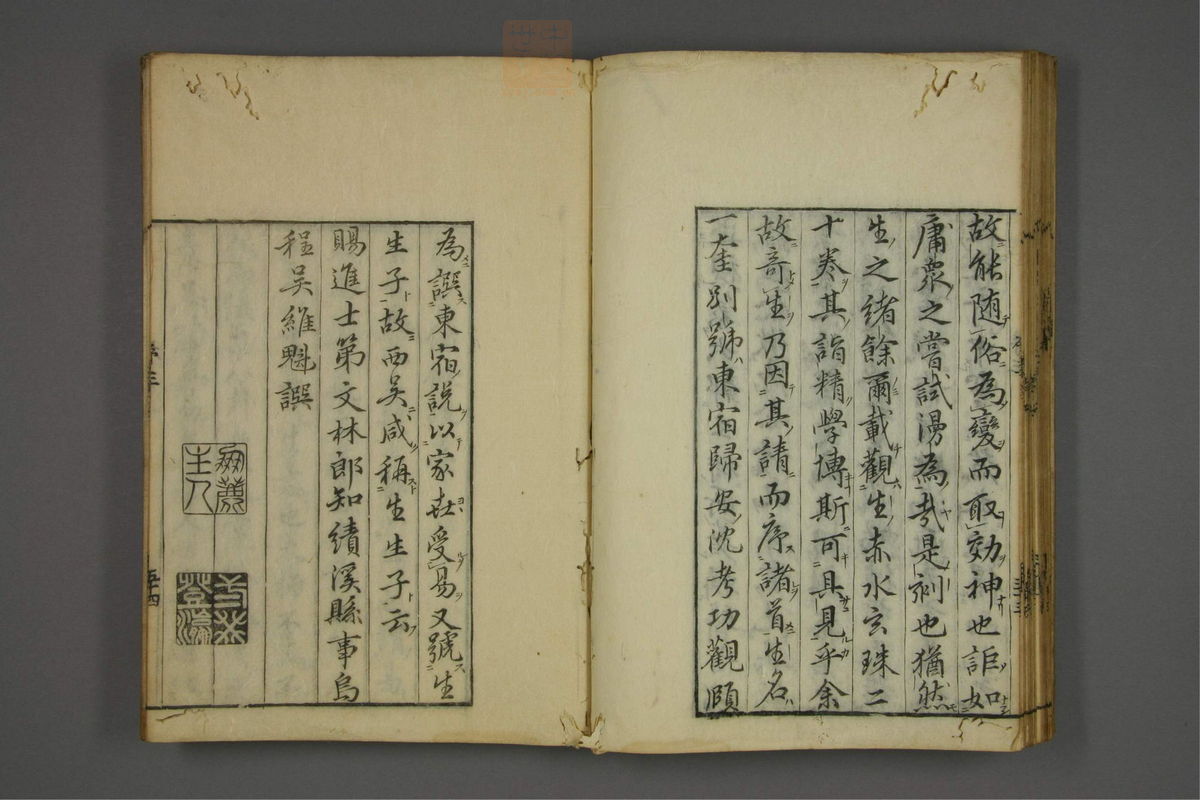 故能随俗為變而取効神也詎如
庸衆之嘗試漫為㢤是剂也猶然
生之緒餘爾載觀生赤水玄珠二
十卷其詣精學博斯可具見乎余
故奇生乃因其請而序諸首生名
一奎别號東宿歸安沈考功觀頤
為譔東宿說以家世受易又號生
生子故西吴咸稱生生子云
賜進士第文林郎知績溪縣事烏
程吴維魁譔
主人
登瀛